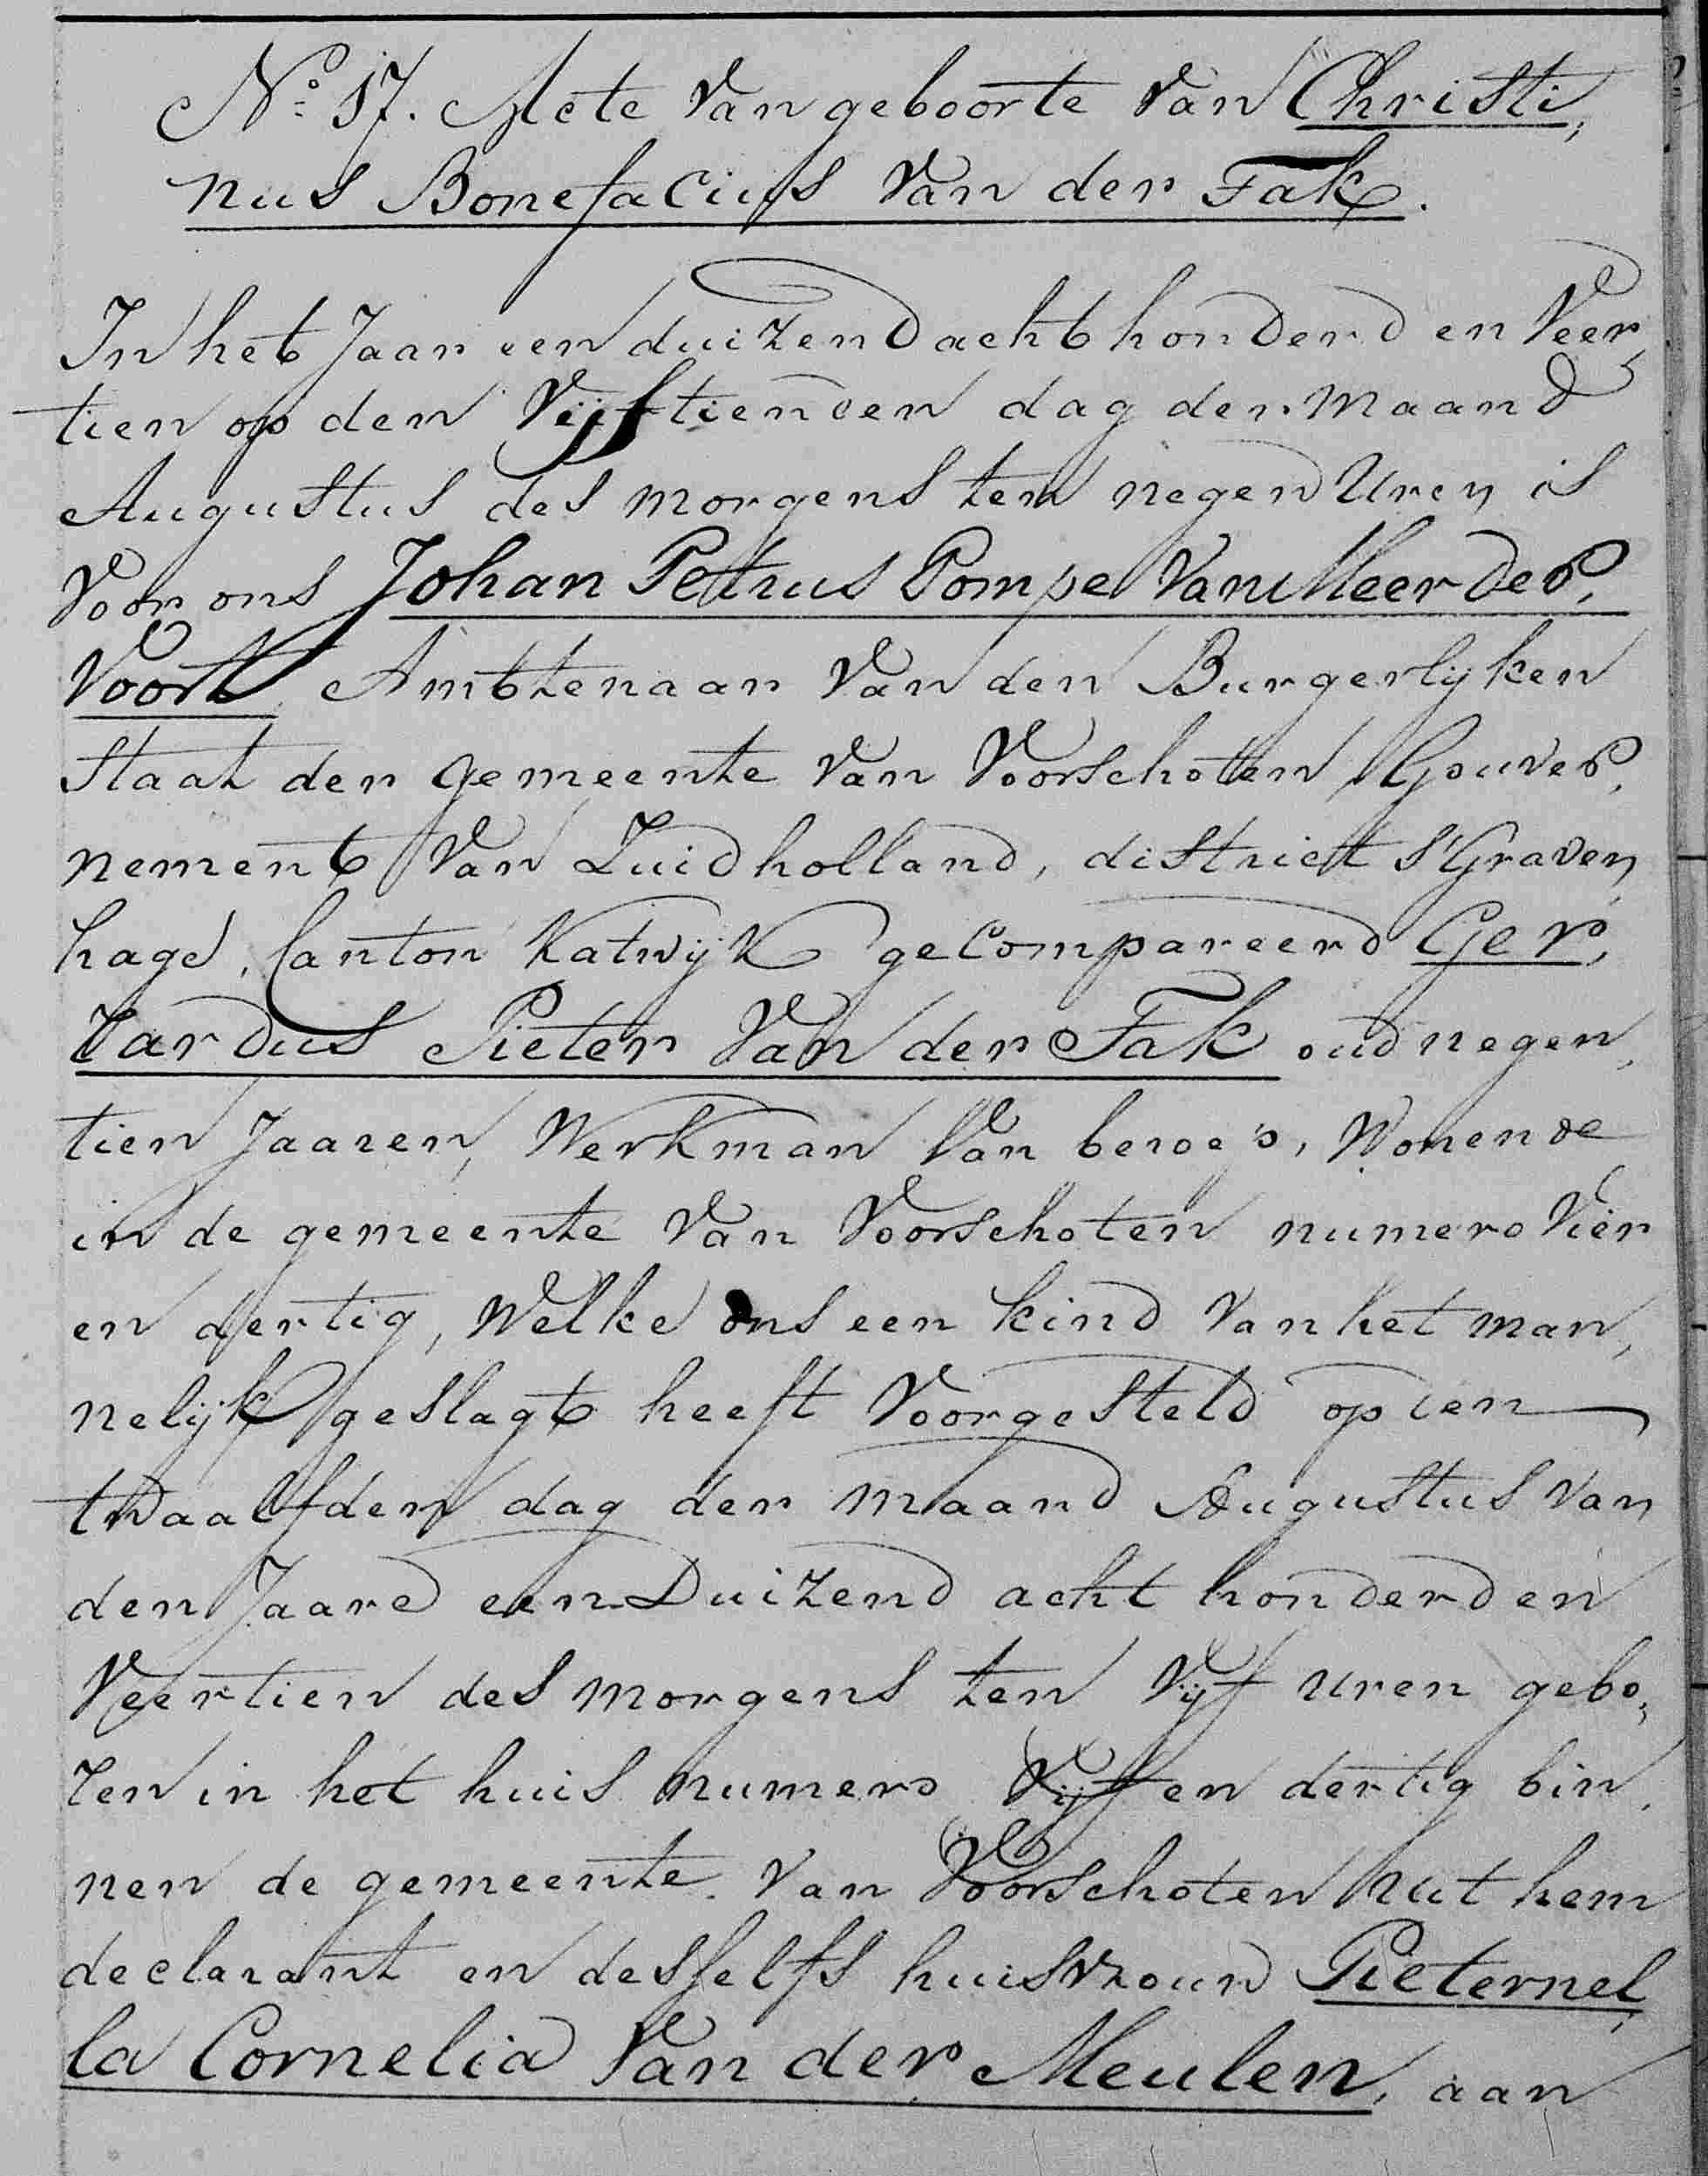 No. 17. Acte van geboorte van Christi,
nus Bonefacius van der Fak.
In het Jaar een duizend acht honderd en veer,
tien op den vijftienden dag der maand
Augustus des morgens ten negen Uren is
voor ons Johan Petrus Pompe van Meerder,
voort, Ambtenaar van den Burgerlijken
Staat der gemeente van Voorschoten, Gouver,
nement van Zuidholland, district s'Graven,
hage, Canton Katwijk gecompareerd Ger,
rardus Pieter van der Fak oud negen,
tien Jaaren, Werkman van beroep, Wonende
in de gemeente van Voorschoten numero vier
en dertig, Welke ons een kind van het man,
nelijk geslagt heeft voorgesteld op den
twaalfden dag der maand Augustus van
den Jaare een Duizend acht honderd en
veertien des morgens ten vijf uren gebo,
ren in het huis numero vijf en dertig bin,
nen de gemeente van Voorschoten uit hem
declarant en desselfs huisvrouw Pieternel,
la Cornelia van der Meulen, aan